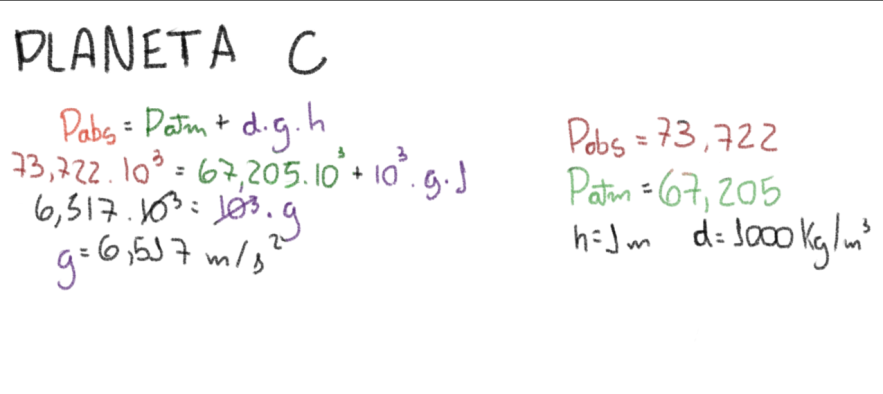 PLANETA C
Pabs = Patm + d.g.h
73,722.10³ = 67,205.10³ + 10³.g.1
6,517.10³ = 10³.g
g = 6,517 m/s²
Pabs = 73,722
Patm = 67,205
h = 1m d = 1000 Kg/m³